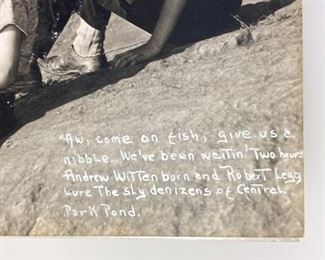 "Aw, come on fish, give us a
nibble. We've been waitin' Two hours
Andrew Wittenborn and Robert Legg
lure The shy denizens of Central
Park Pond.